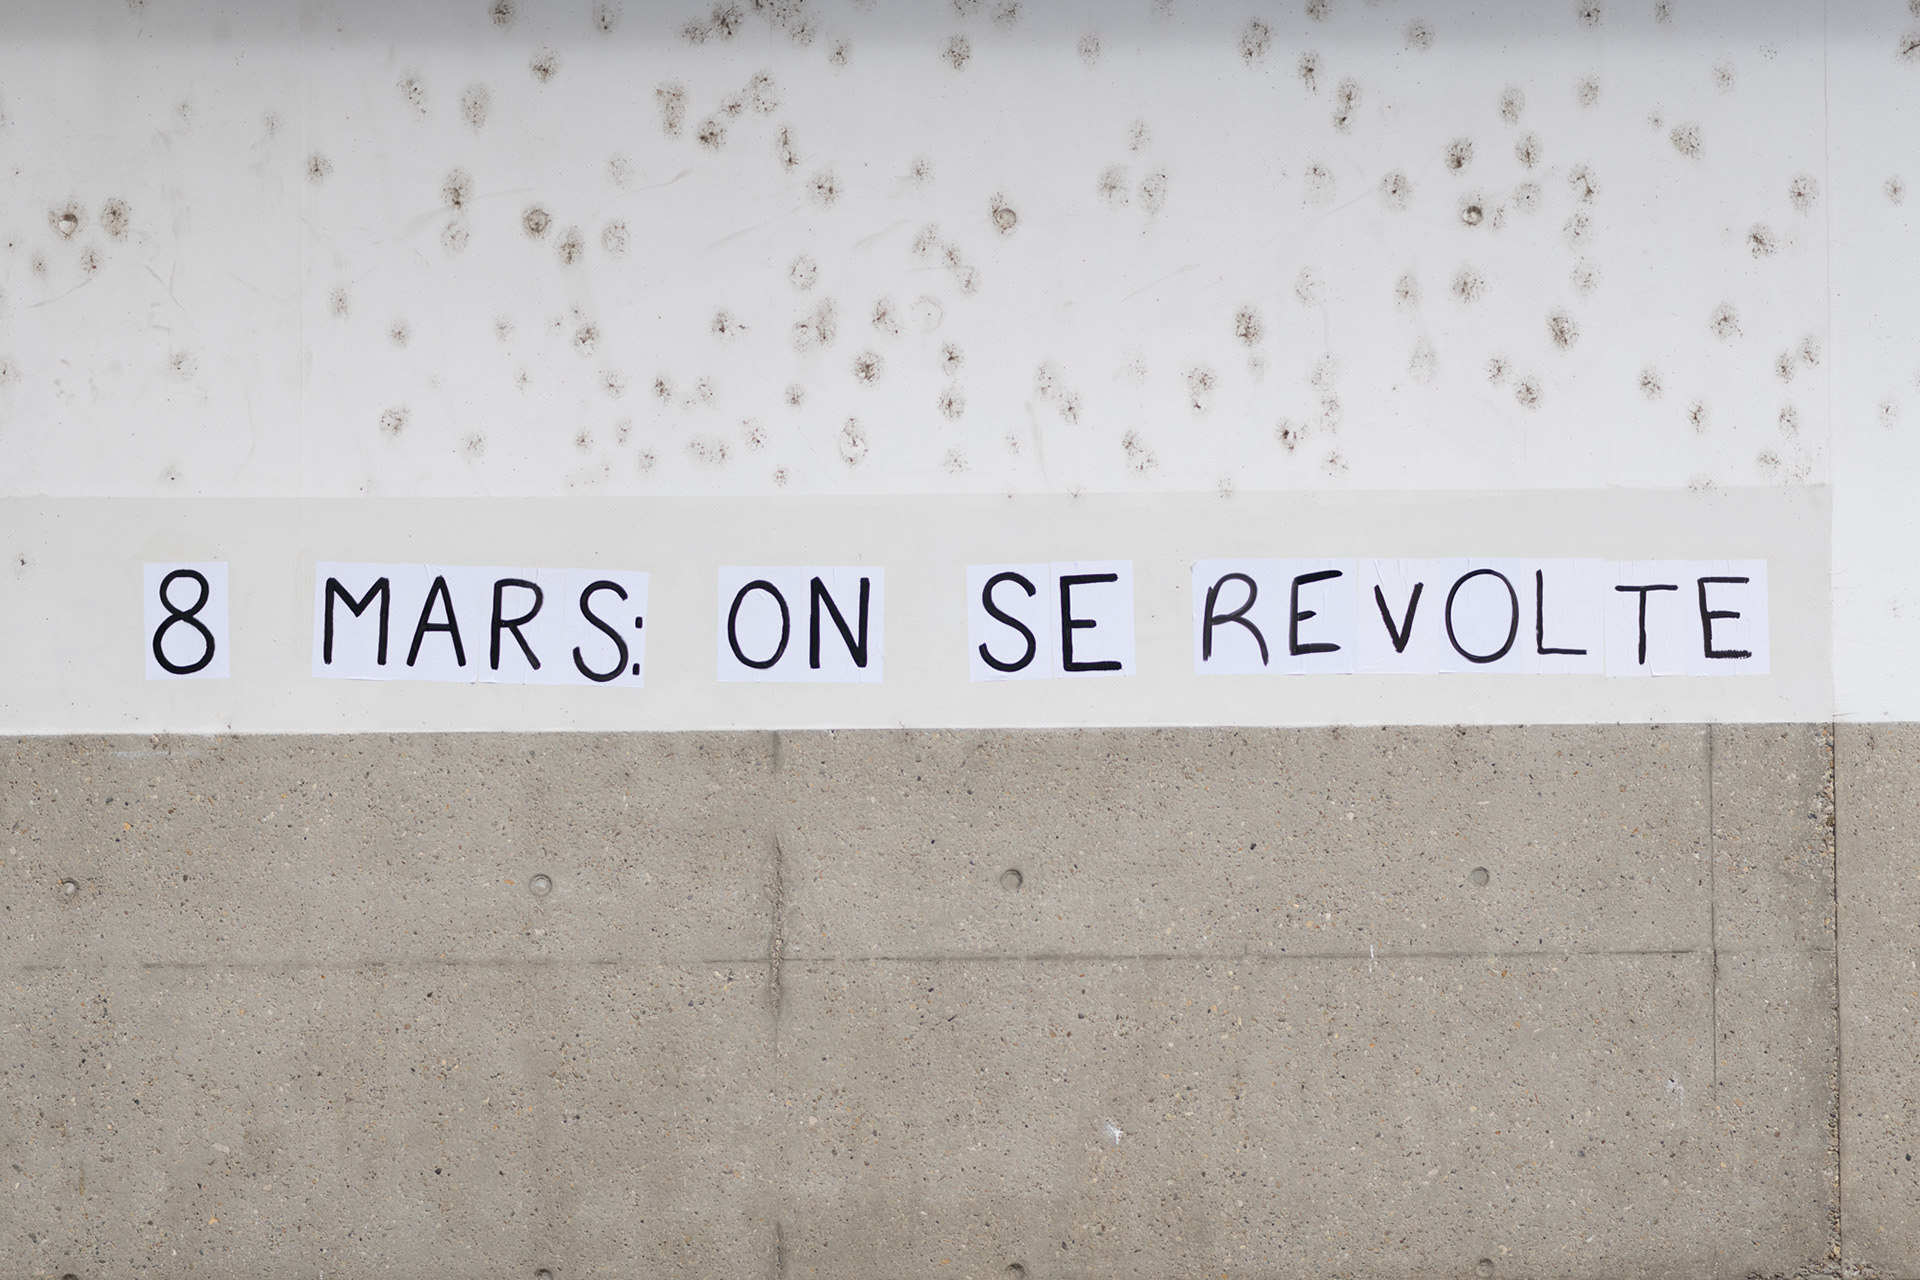 8 MARS: ON SE REVOLTE